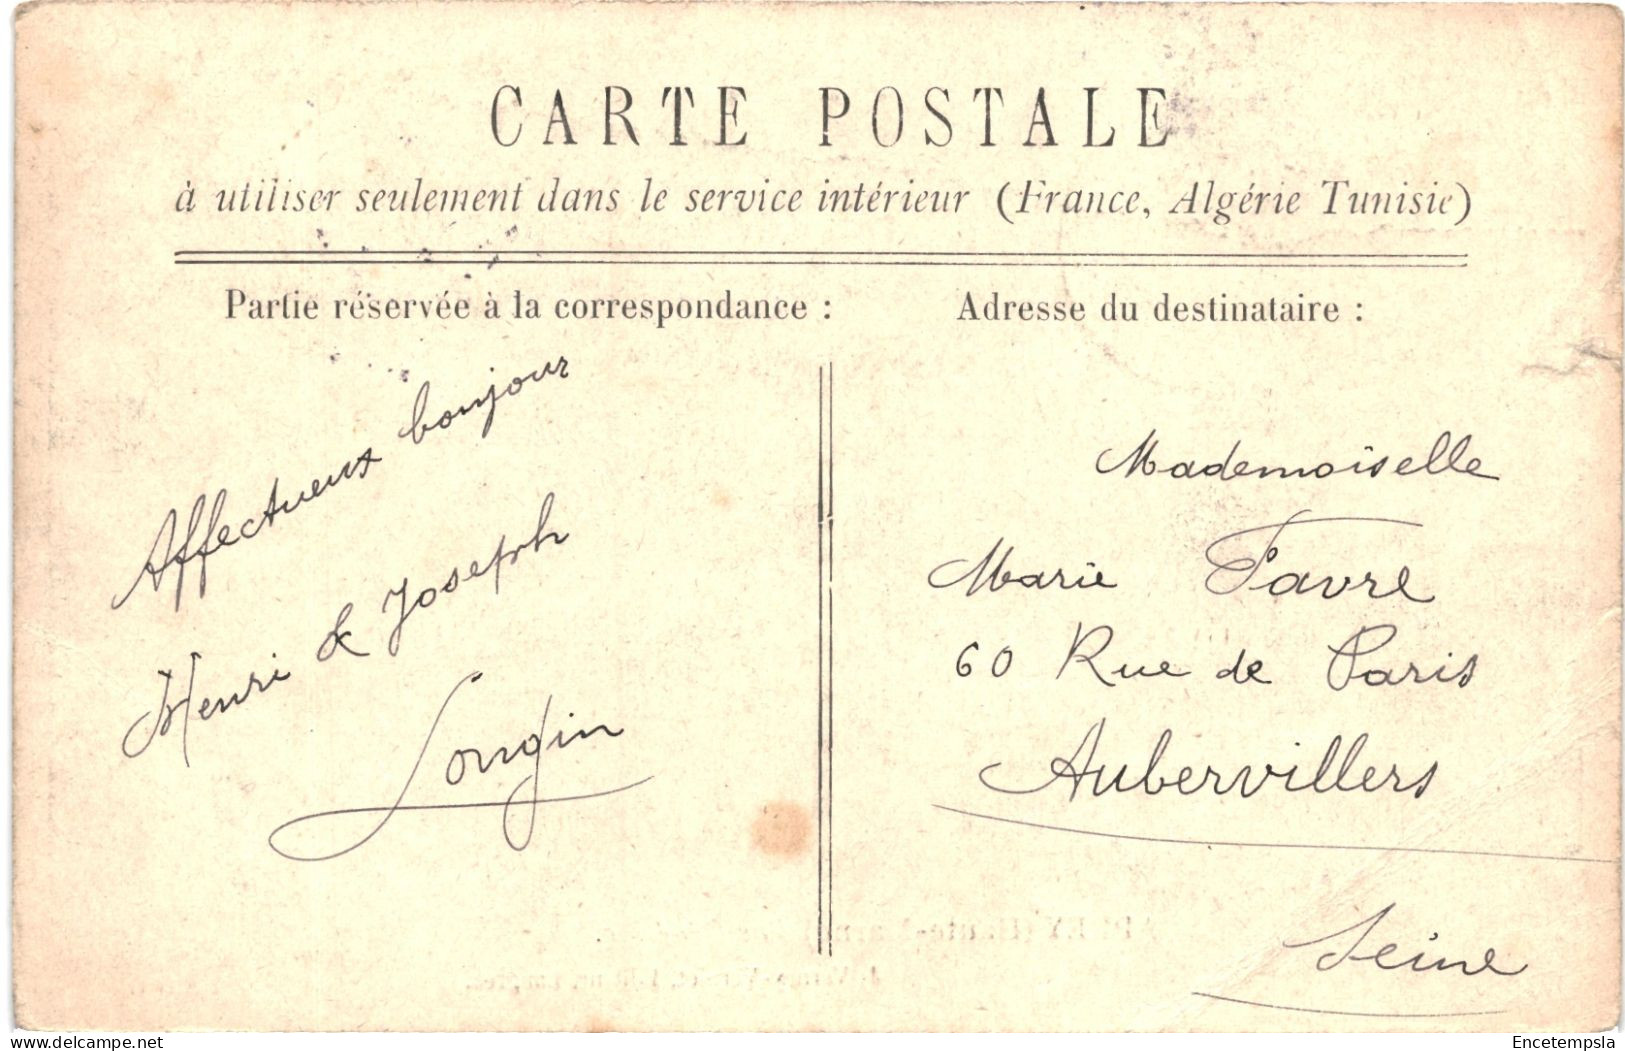 CARTE POSTALE
à utiliser seulement dans le service intérieur (France, Algérie Tunisie)
Partie réservée à la correspondance :
Affectueux bonjour
Henri & Joseph
Longin
Adresse du destinataire :
Mademoiselle
Marie Favre
60 Rue de Paris
Aubervillers
Seine
delcampe.net
Encetempsla